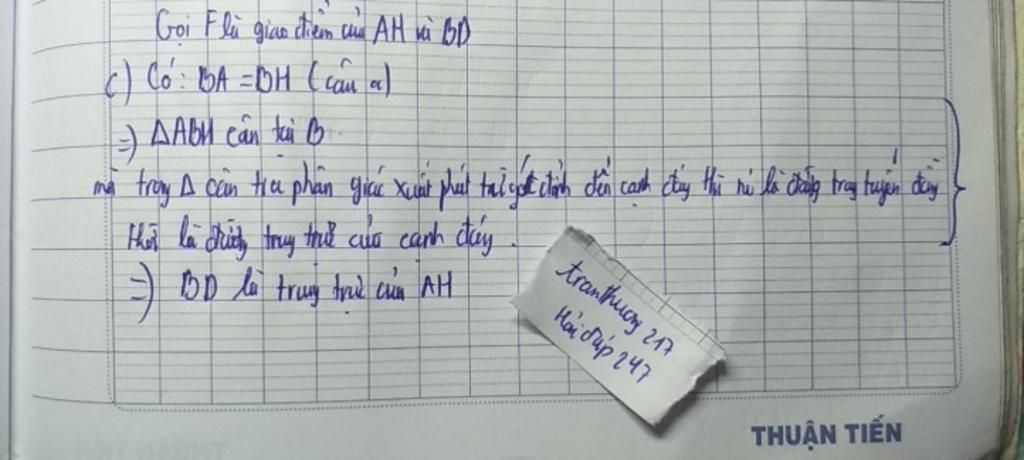 Gọi F là giao điểm của AH và BD
c) Có: BA = BH (câu a)
=) ΔABH cân tại B
mà trong Δ cân tia phân giác xuất phát tại góc đỉnh đến cạnh đáy thì nó là đường trung tuyến đồng
thời là đường trung trực của cạnh đáy.
=) BD là trung trực của AH
tranthuong 217
Hỏi đáp 247
THUẬN TIẾN